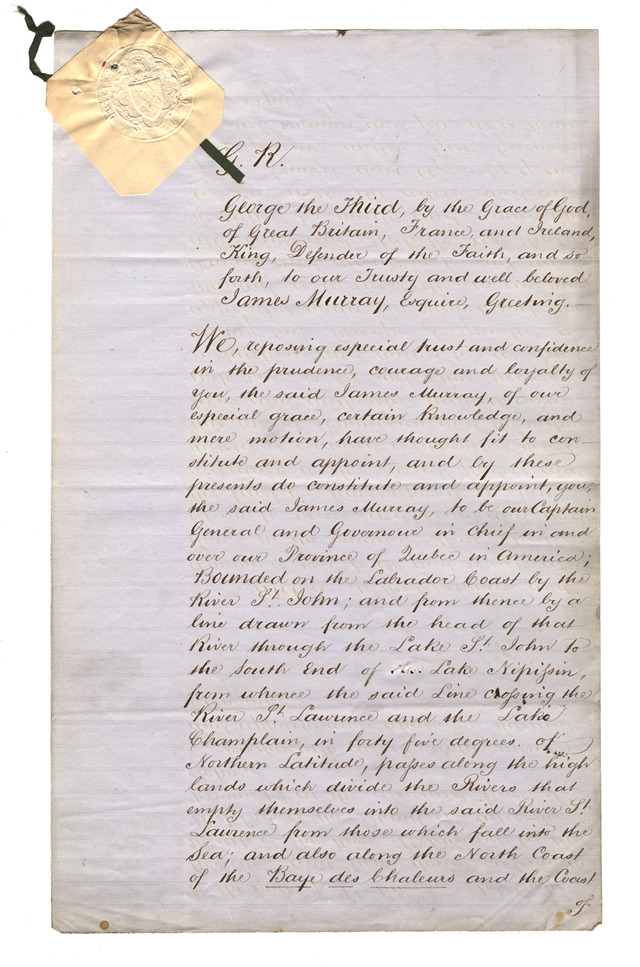 G. R.
George the Third, by the Grace of God,
of Great Britain, France, and Ireland,
King, Defender of the Faith, and so
forth, to our Trusty and well beloved
James Murray, Esquire, Greeting.—
We, reposing especial trust and confidence
in the prudence, courage and loyalty of
you, the said James Murray, of our
especial grace, certain knowledge, and
mere motion, have thought fit to con-
stitute and appoint, and by these
presents do constitute and appoint, you,
the said James Murray, to be our Captain
General and Governour in chief in and
over our Province of Quebec in America;
Bounded on the Labrador Coast by the
River St. John; and from thence by a
line drawn from the head of that
River through the Lake St. John to
the South End of Lake Nipissin,
from whence the said Line crossing the
River St. Lawrence and the Lake
Champlain, in forty five degrees of
Northern Latitude, passes along the high
lands which divide the Rivers that
empty themselves into the said River St.
Lawrence from those which fall into the
Sea; and also along the North Coast
of the Baye des Chaleurs and the Coast
of